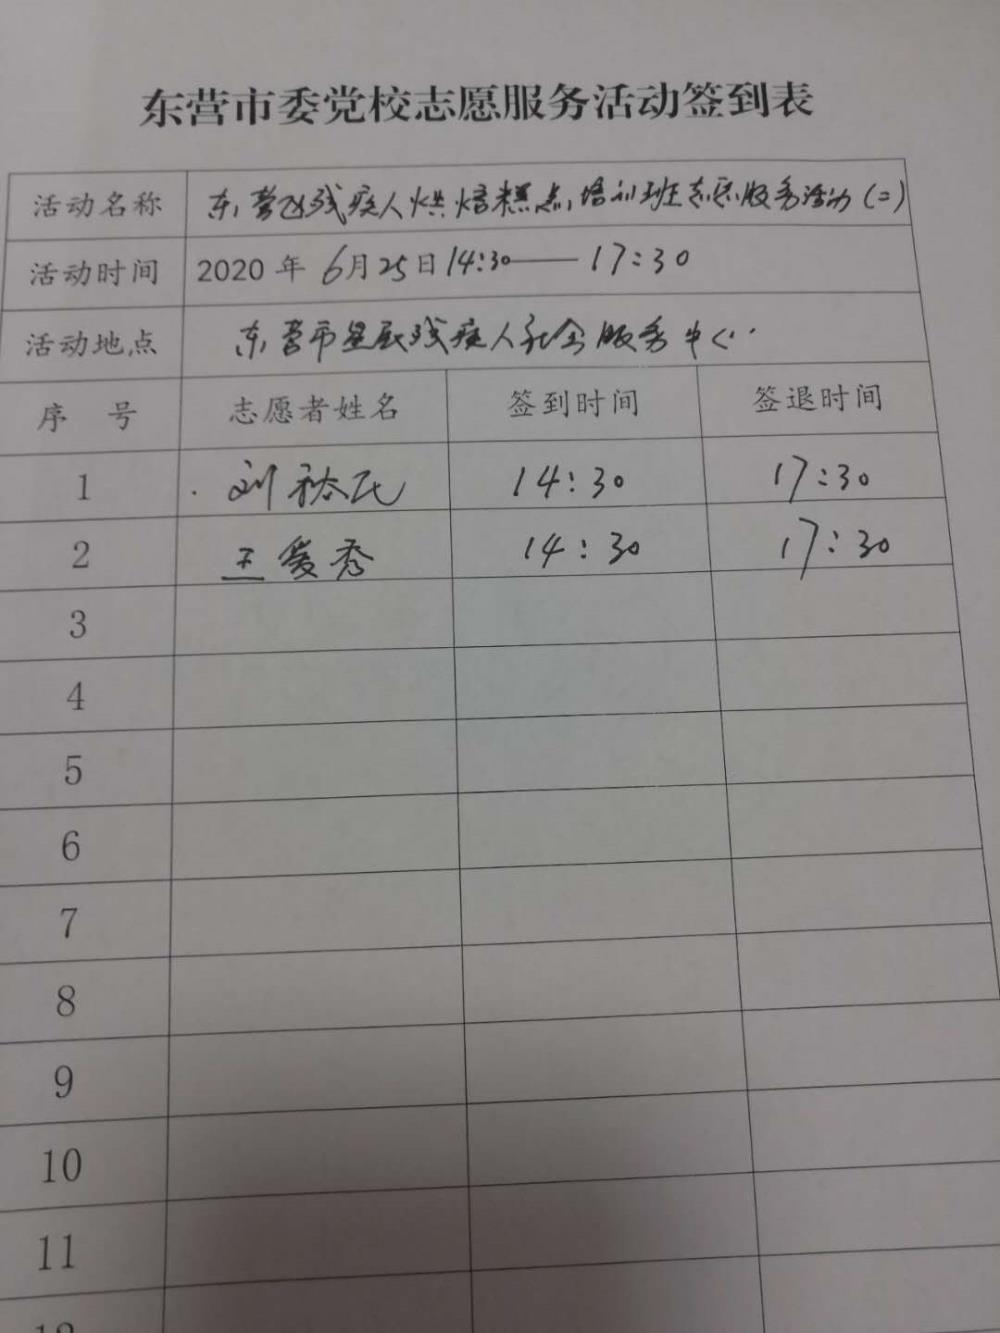 东营市委党校志愿服务活动签到表
活动名称 东营区残疾人烘焙糕点培训班志愿服务活动(二)
活动时间 2020年 6月25日14:30——17:30
活动地点 东营市星辰残疾人社会服务中心
序 号 志愿者姓名 签到时间 签退时间
1 刘裕民 14:30 17:30
2 王爱秀 14:30 17:30
3
4
5
6
7
8
9
10
11
12